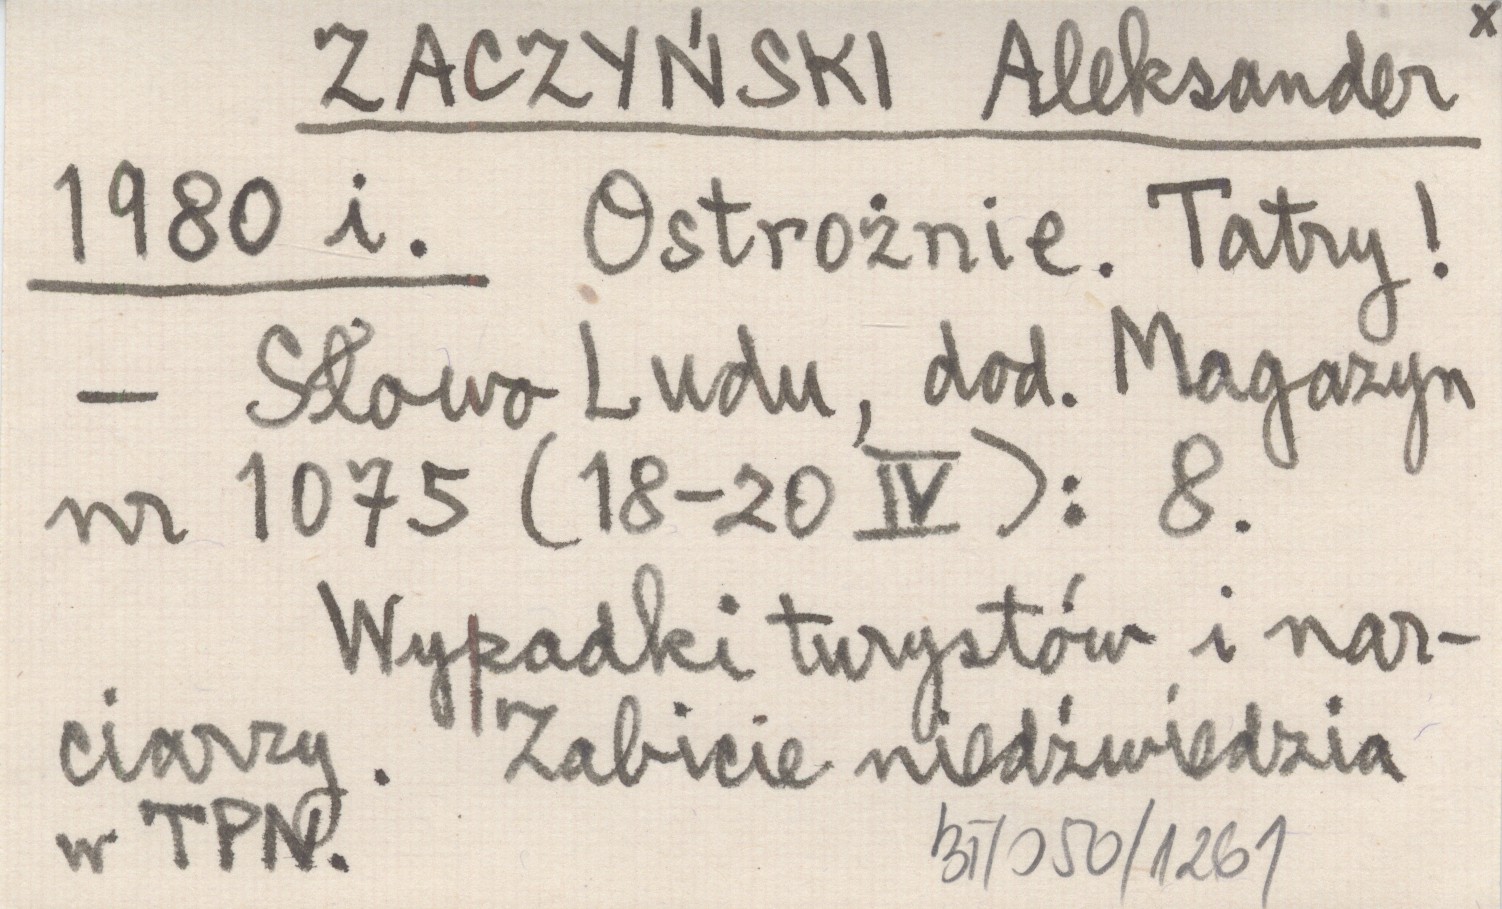 ZACZYŃSKI Aleksander x
1980 i. Ostrożnie. Tatry!
— Słowo Ludu, dod. Magazyn
nr 1075 (18-20 IV): 8.
Wypadki turystów i nar-
ciarzy. Zabicie niedźwiedzia
w TPN.
BT/050/1261